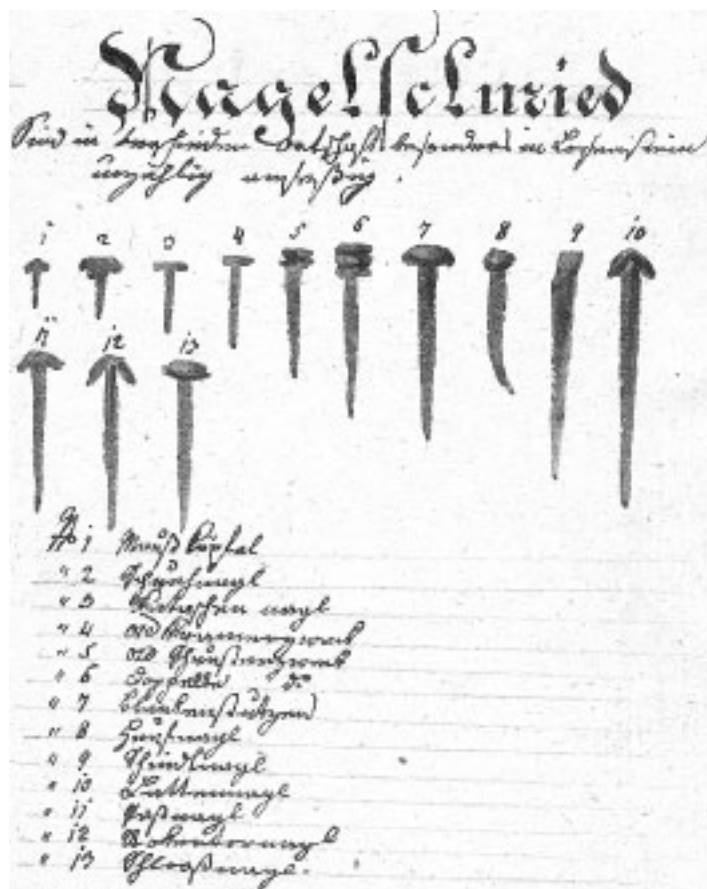 Nagelschmied
Sind in verschieden Ortschaft besonders in Losenstein
unzählig ansessig.
1 2 3 4 5 6 7 8 9 10
11 12 13
No 1 Mauß Köpfal
" 2 Schuchnagl
" 3 nagl
" 4 ord Kramerzwek
" 5 ord Schusterzwek
" 6 Doppelte do
" 7
" 8 Huefnagl
" 9 Schindlnagl
" 10 Lattennagl
" 11 Faßnagl
" 12
" 13 Schloßnagl.